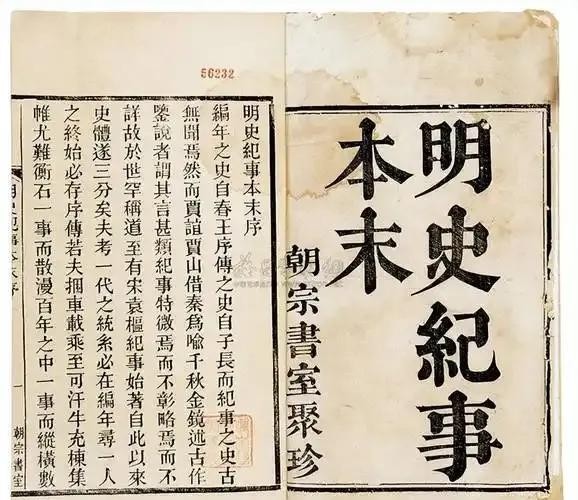 明史紀事
本末
朝宗書室聚珍
56232
明史紀事本末序
編年之史自春王序傳之史自子長而紀事之史古
無聞焉然而賈誼賈山借秦爲喻千秋金鏡述古作
鑒說者謂其言甚類紀事特微焉而不彰略焉而不
詳故於世罕稱道至有宋袁樞紀事始著自此以來
史體遂三分矣夫考一代之統系必在編年尋一人
之終始必存序傳若夫捆車載乘至可汗牛充棟集
帷尤難衡石一事而散漫百年之中一事而縱橫數
明史紀事本末序
一
朝宗書室